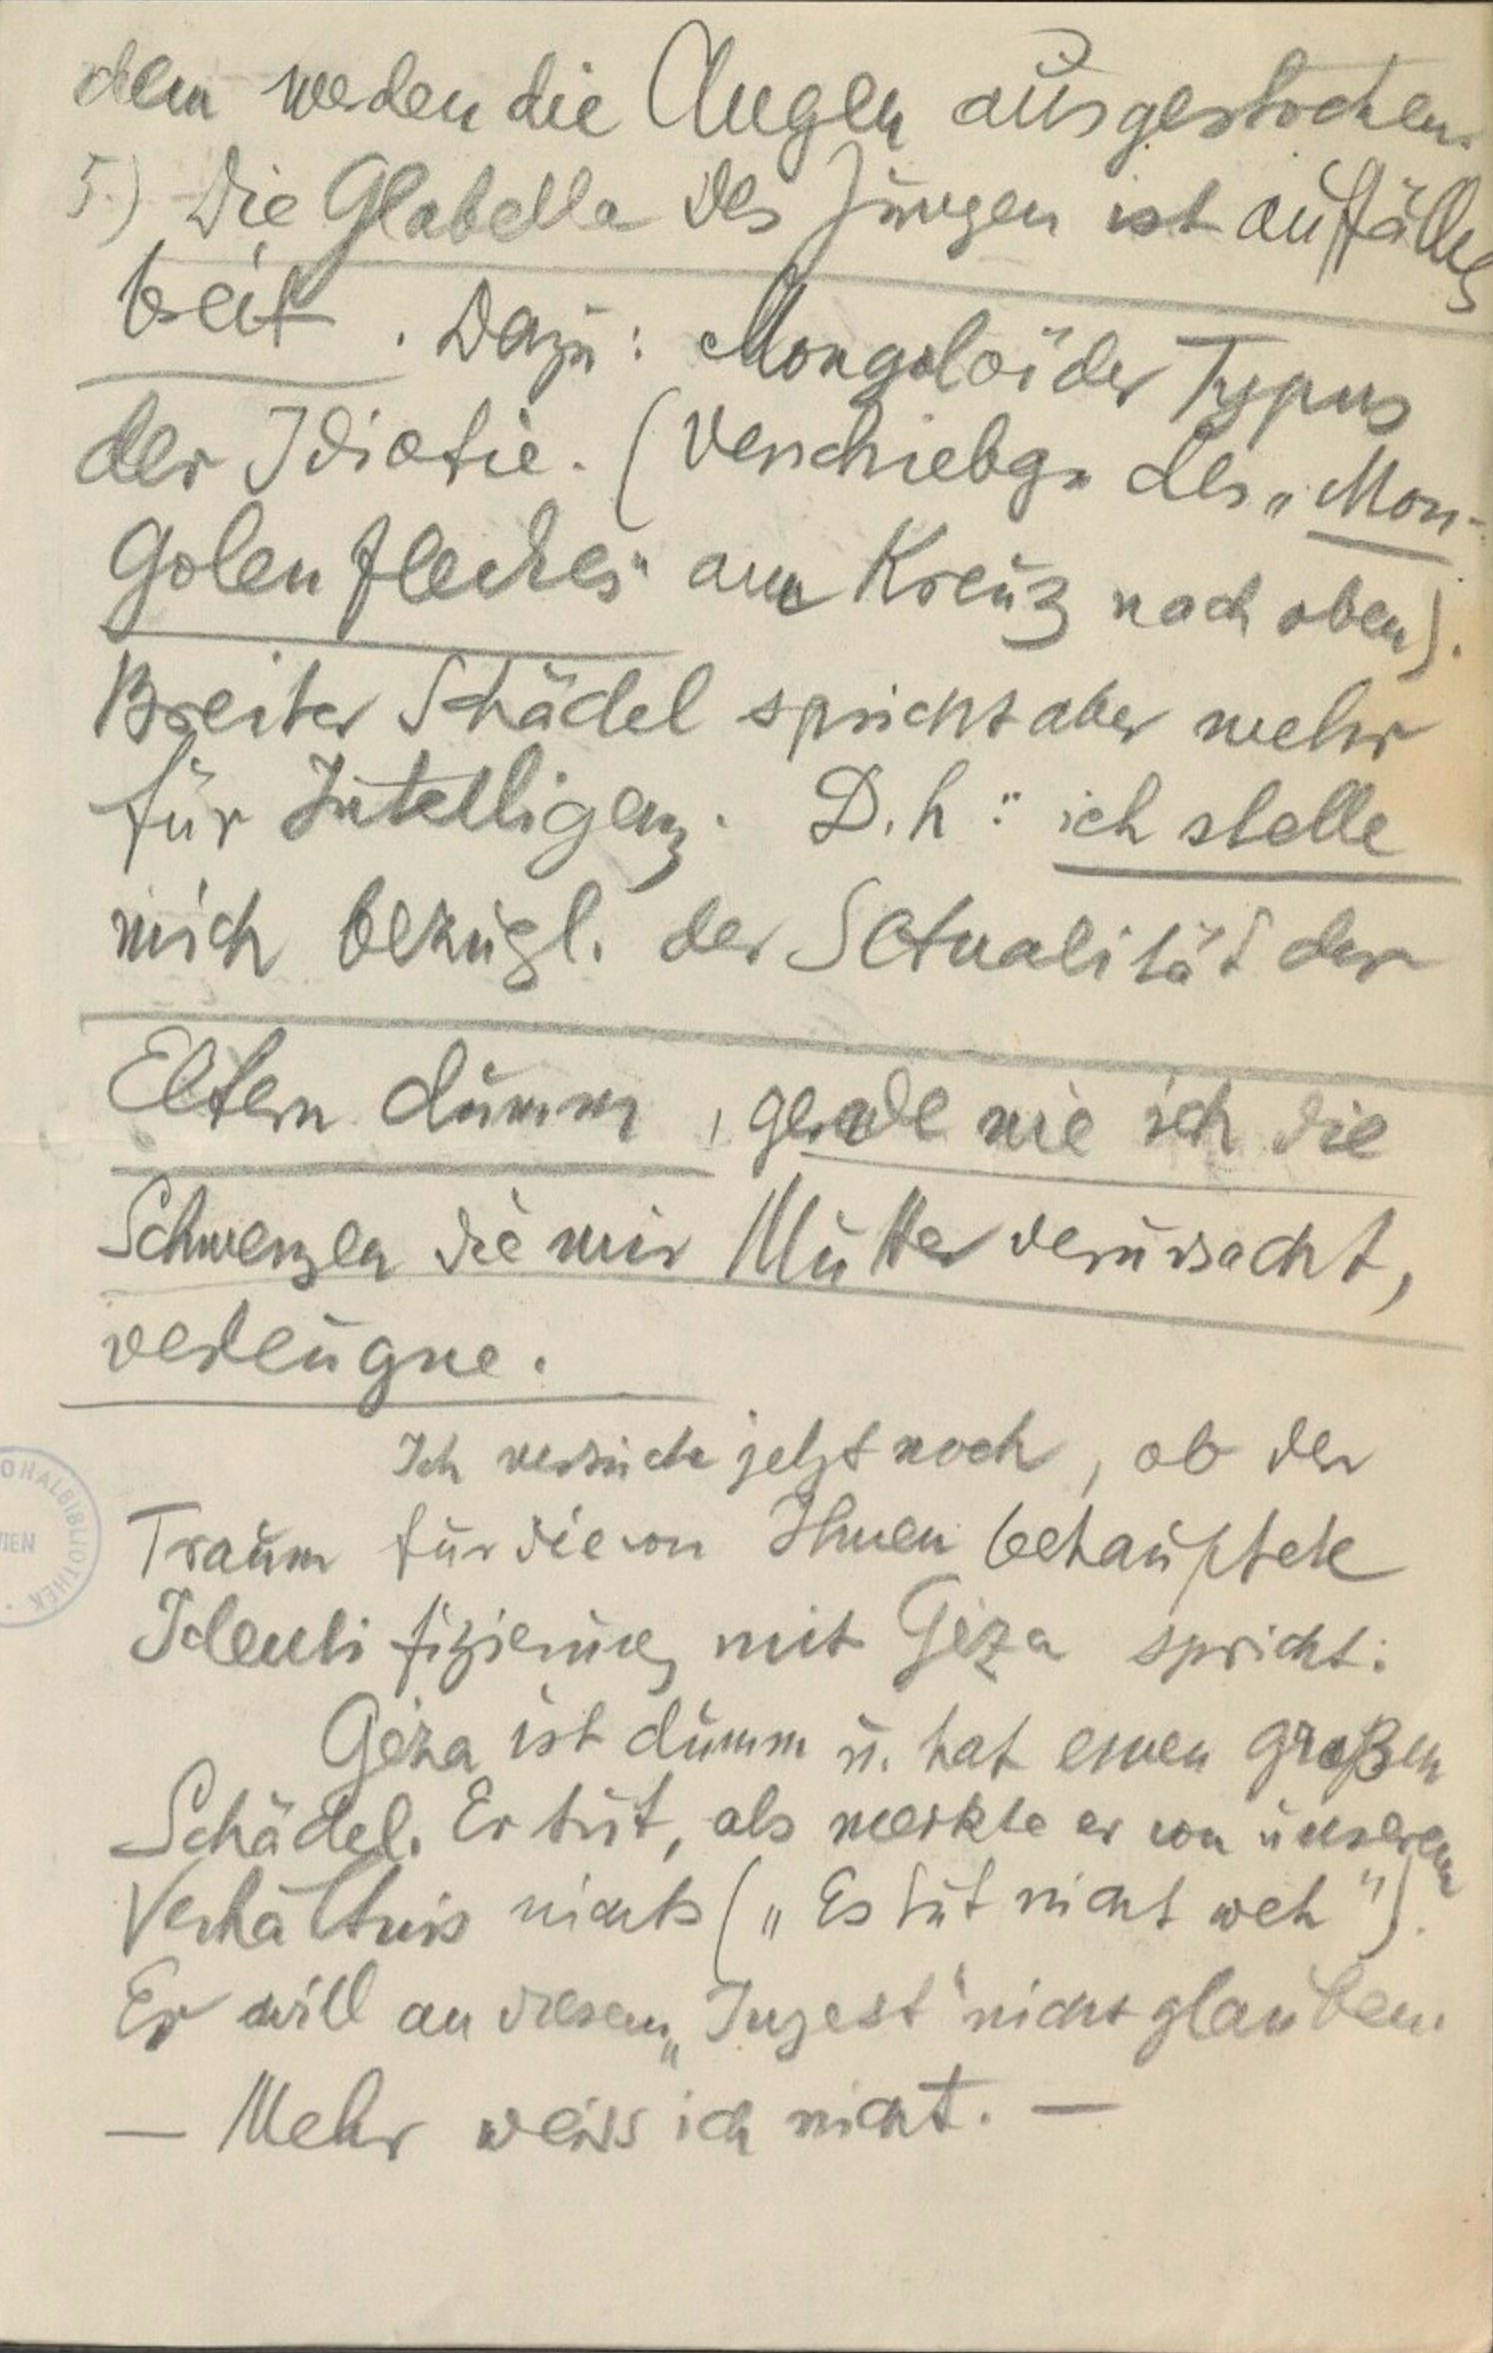 dem werden die Augen ausgestochen.
5.) Die Glabella des Jungen ist auffällig
breit. Dazu: Mongoloider Typus
der Idiotie. (Verschiebg. des „Mon-
golenfleckes" am Kreuz nach oben).
Breiter Schädel spricht aber mehr
für Intelligenz. D.h: ich stelle
mich bezügl. der Sexualität der
Eltern dumm, gerade wie ich die
Schmerzen die mir Mutter verursacht,
verleugne.
Ich versuche jetzt noch, ob der
Traum für die von Ihnen behauptete
Identifizierung mit Géza spricht:
Géza ist dumm u. hat einen großen
Schädel. Er tut, als merkte er von unserem
Verhältnis nichts („Es tut nicht weh").
Er will an diesem „Inzest" nicht glauben.
— Mehr weiss ich nicht. —
ONALBIBLIOTHEK
WIEN